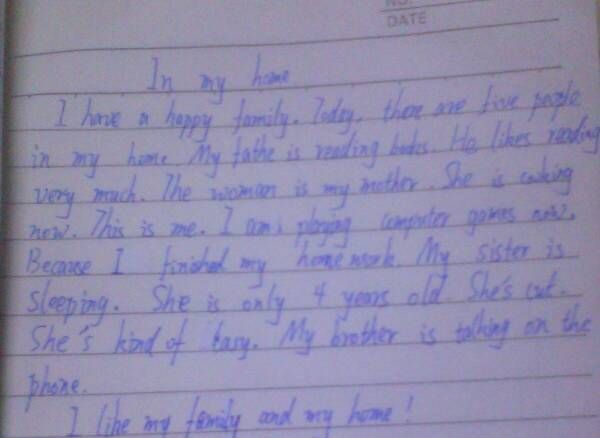 NO.
DATE
In my home
I have a happy family. Today, there are five people
in my home. My fathe is reading books. He likes reading
very much. The woman is my mother. She is cooking
now. This is me. I am playing computer games now.
Because I finished my homework. My sister is
sleeping. She is only 4 years old. She's cut.
She's kind of easy. My brother is talking on the
phone.
I like my family and my home!